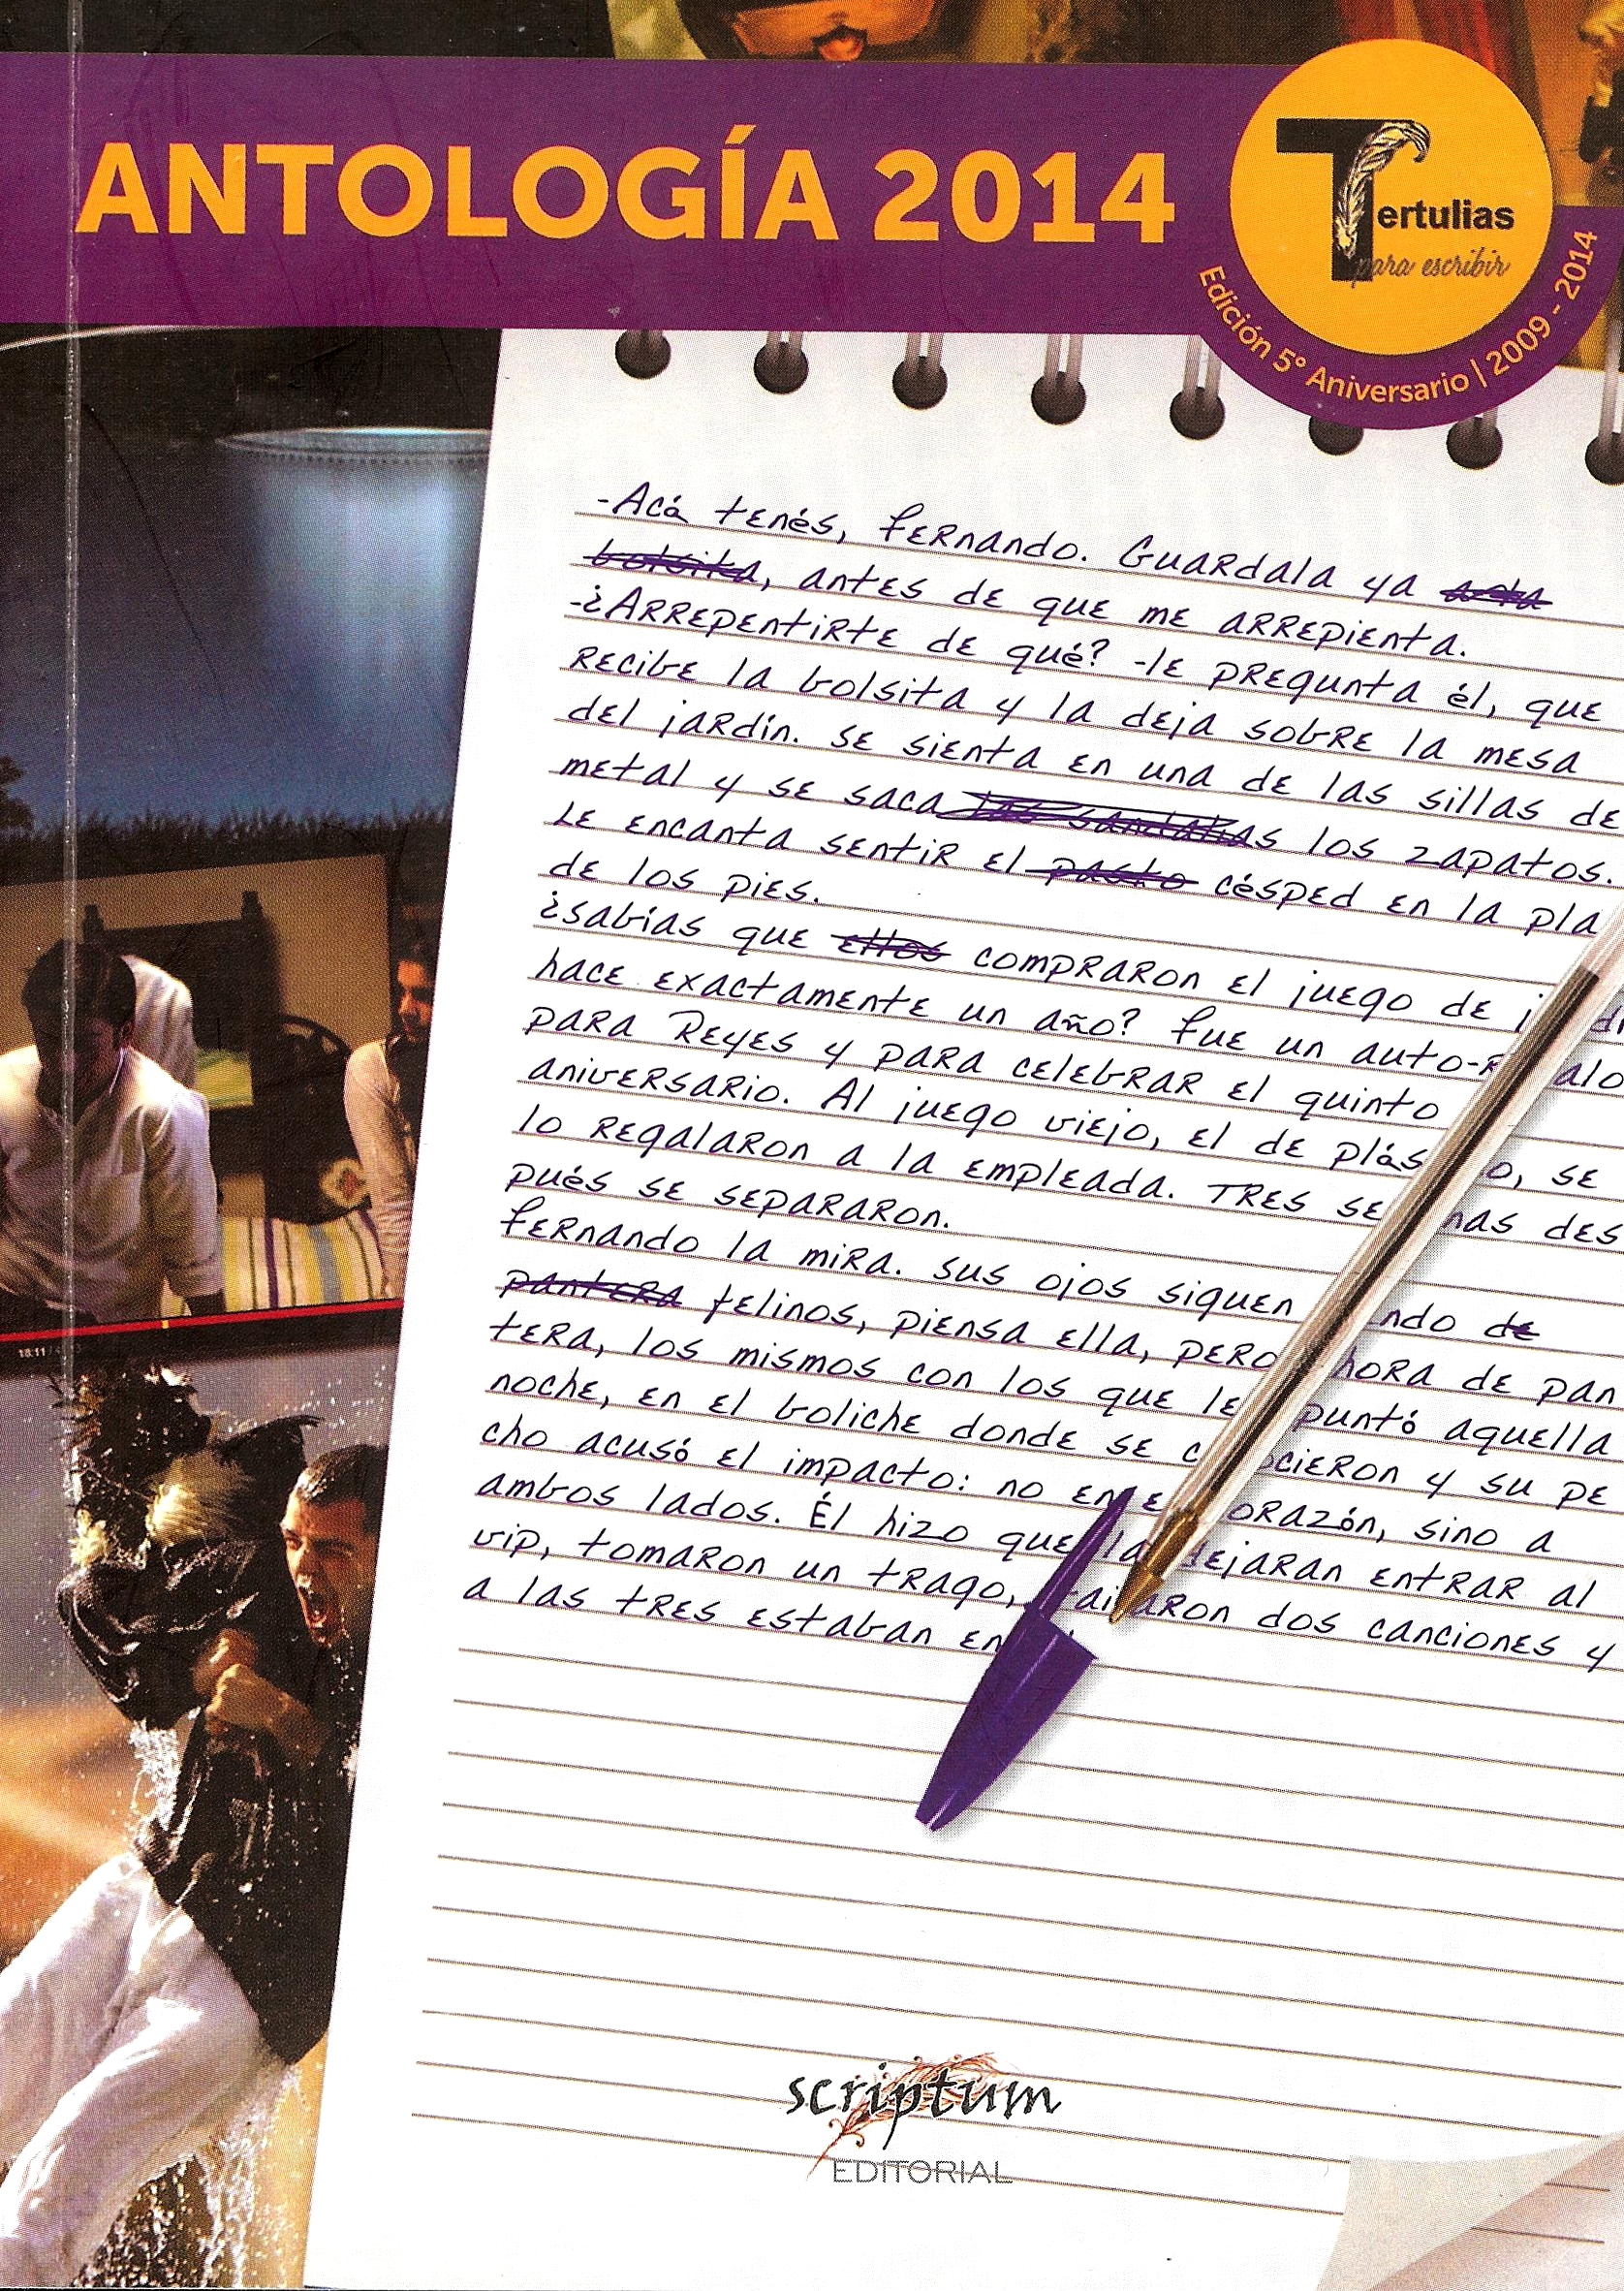 ANTOLOGÍA 2014
Tertulias
para escribir
Edición 5º Aniversario | 2009 - 2014
-Acá tenés, Fernando. Guardala ya esta
bolsita, antes de que me arrepienta.
-¿Arrepentirte de qué? -le pregunta él, que
recibe la bolsita y la deja sobre la mesa
del jardín. Se sienta en una de las sillas de
metal y se saca las sandalias los zapatos.
Le encanta sentir el pasto césped en la pla
de los pies.
¿Sabías que ellos compraron el juego de
hace exactamente un año? Fue un auto-
para Reyes y para celebrar el quinto
aniversario. Al juego viejo, el de plás o, se
lo regalaron a la empleada. Tres se nas des
pués se separaron.
Fernando la mira. Sus ojos siguen ndo de
pantera felinos, piensa ella, pero hora de pan
tera, los mismos con los que le puntó aquella
noche, en el boliche donde se c ocieron y su pe
cho acusó el impacto: no en e orazón, sino a
ambos lados. Él hizo que la dejaran entrar al
vip, tomaron un trago, bailaron dos canciones y
a las tres estaban en
18:11
scriptum
EDITORIAL